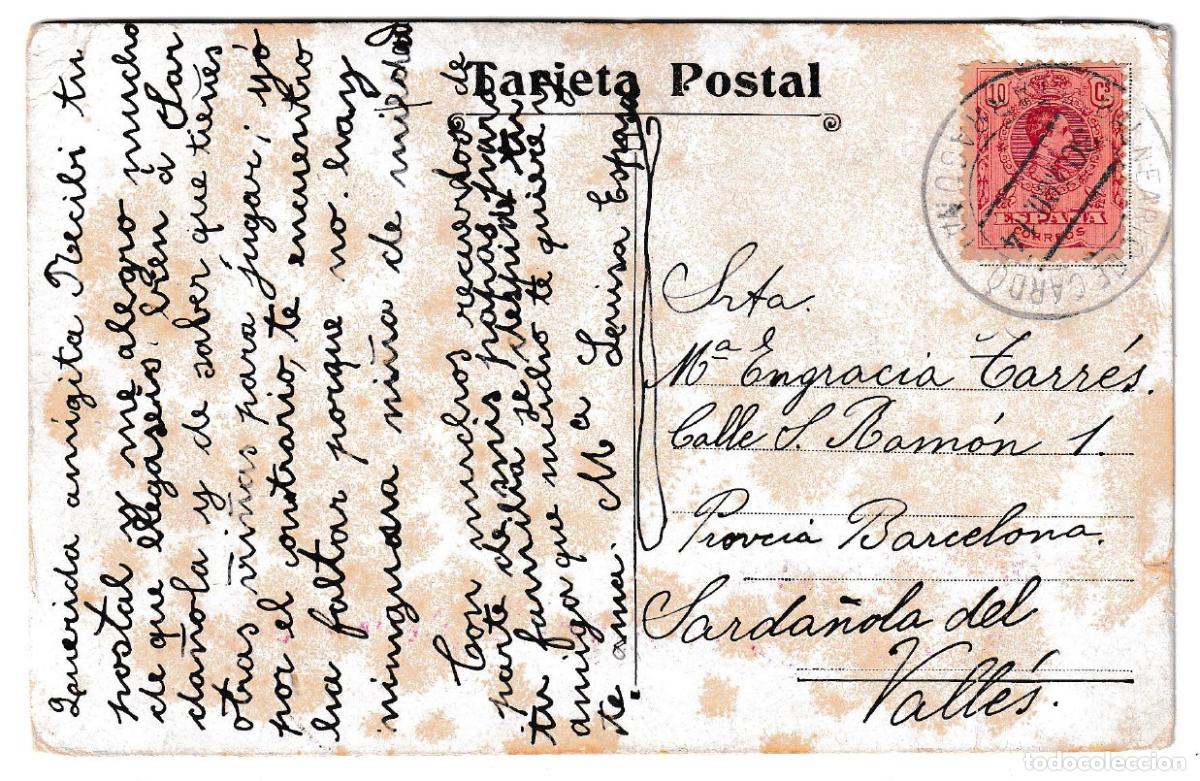 Tarjeta Postal
Querida amigita Recibi tu
postal y me alegro mucho
de que llegaseis bien a Sar
dañola y de saber que tienes
otras niñas para jugar, yo
por el contrario, te encuentro
ha faltar porque no hay
ninguna niña de mi edad
Con muchos recuerdos de
parte de mis papas para
tu familia se despide tu
amiga que mucho te quiere y
te ama. Mª Luisa
Srta.
Mª Engracia Tarrés.
Calle S. Ramón 1.
Provcia Barcelona.
Sardañola del
Vallés.
10 Cs
ESPAÑA
CORREOS
todocoleccion